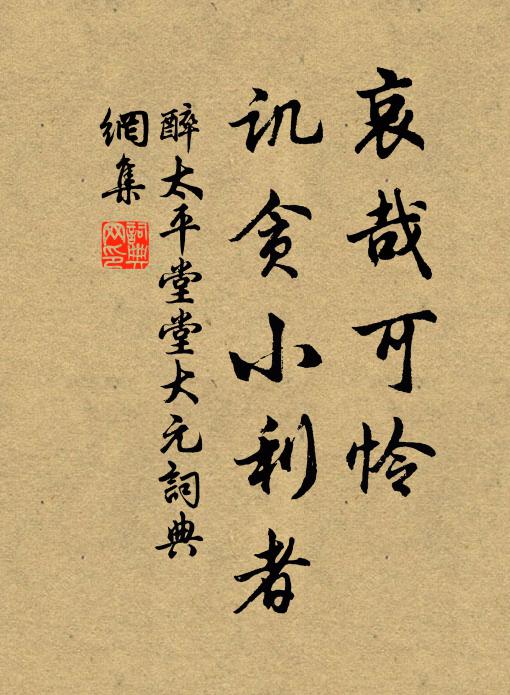 哀哉可怜
讥贪小利者
醉太平堂堂大元詞典
網集
詞典
网印